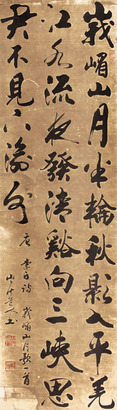 峩嵋山月半輪秋影入平羌
江水流夜發清谿向三峽思
君不見下渝州
唐 李白詩 峩嵋山月歌一首